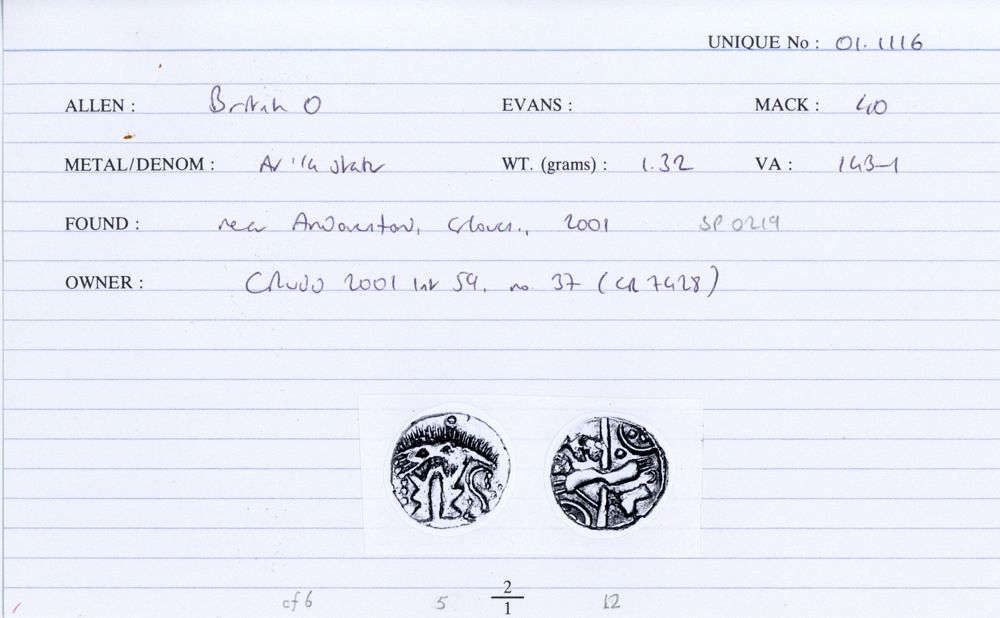 UNIQUE No : 01.1116
ALLEN : British O EVANS : MACK : 40
METAL/DENOM : AV 1/4 stater WT. (grams) : 1.32 VA : 143-1
FOUND : near Andoversford, Gloucs., 2001 SP 0219
OWNER : CRUDD 2001 list 59, no. 37 (CR 7428)
cf 6 5 2/1 12